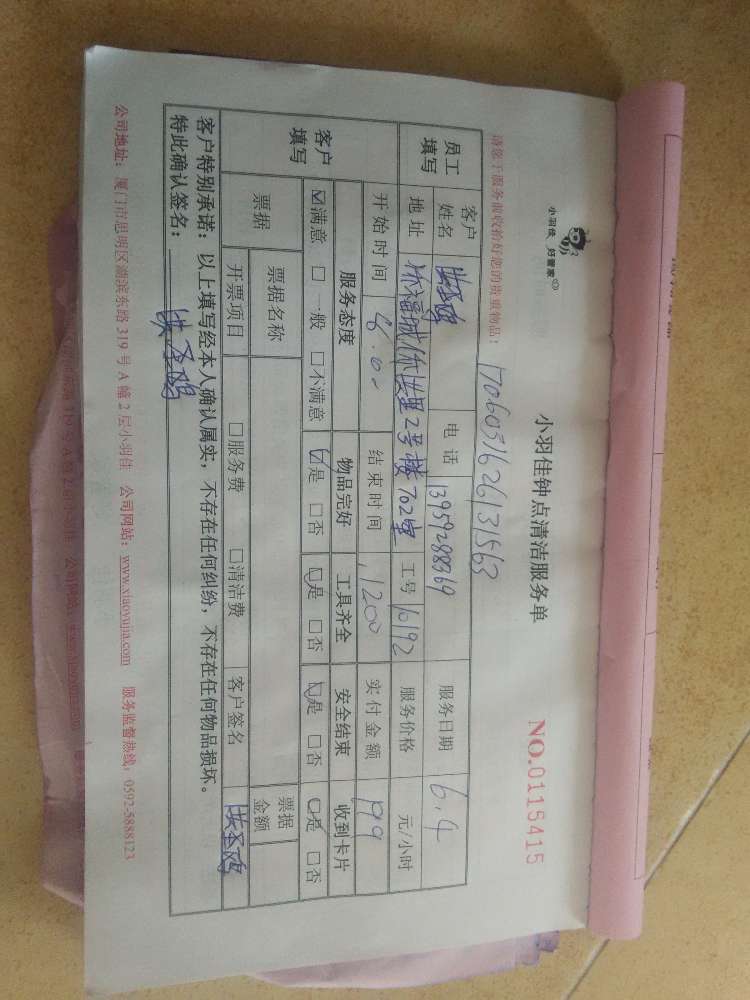 小羽佳 好管家
小羽佳钟点清洁服务单
NO.0115415
请您于服务前收拾好您的贵重物品!
1706031626131563
员工填写 客户姓名 电话 13959288369 服务日期 6.4
地址 2号楼702室 工号 10192 服务价格 元/小时
开始时间 8.00 结束时间 1200 实付金额 199
客户填写 服务态度 物品完好 工具齐全 安全结束 收到卡片
☑满意 □一般 □不满意 ☑是 □否 ☑是 □否 ☑是 □否 ☑是 □否
票据 票据名称 票据金额
开票项目 □服务费 □清洁费 客户签名
客户特别承诺:以上填写经本人确认属实,不存在任何纠纷,不存在任何物品损坏。
特此确认签名:
公司地址:厦门市思明区湖滨东路319号A幢2层小羽佳 公司网站:www.xiaoyujia.com 服务监督热线:0592-5888123